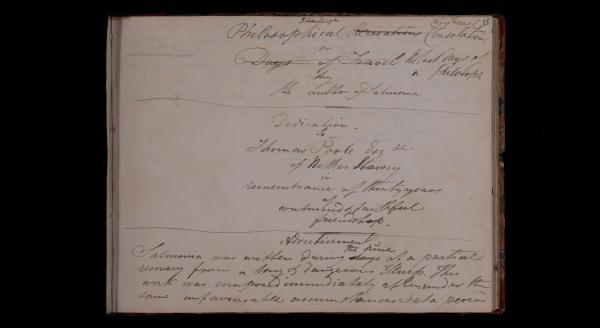 Philosophical Recreations Consolations
or
Days of Travel the last days of
by a Philosopher
the author of Salmonia
Dedication.
to
Thomas Poole Esq
of Nether Stowey
in
remembrance of thirty years
of
continued & faithful
friendship.
Advertisement
the time
Salmonia was written during at a partial
recovery from a long & dangerous Illness. This
work was composed immediately after under the
same unfavourable circumstances & at a period